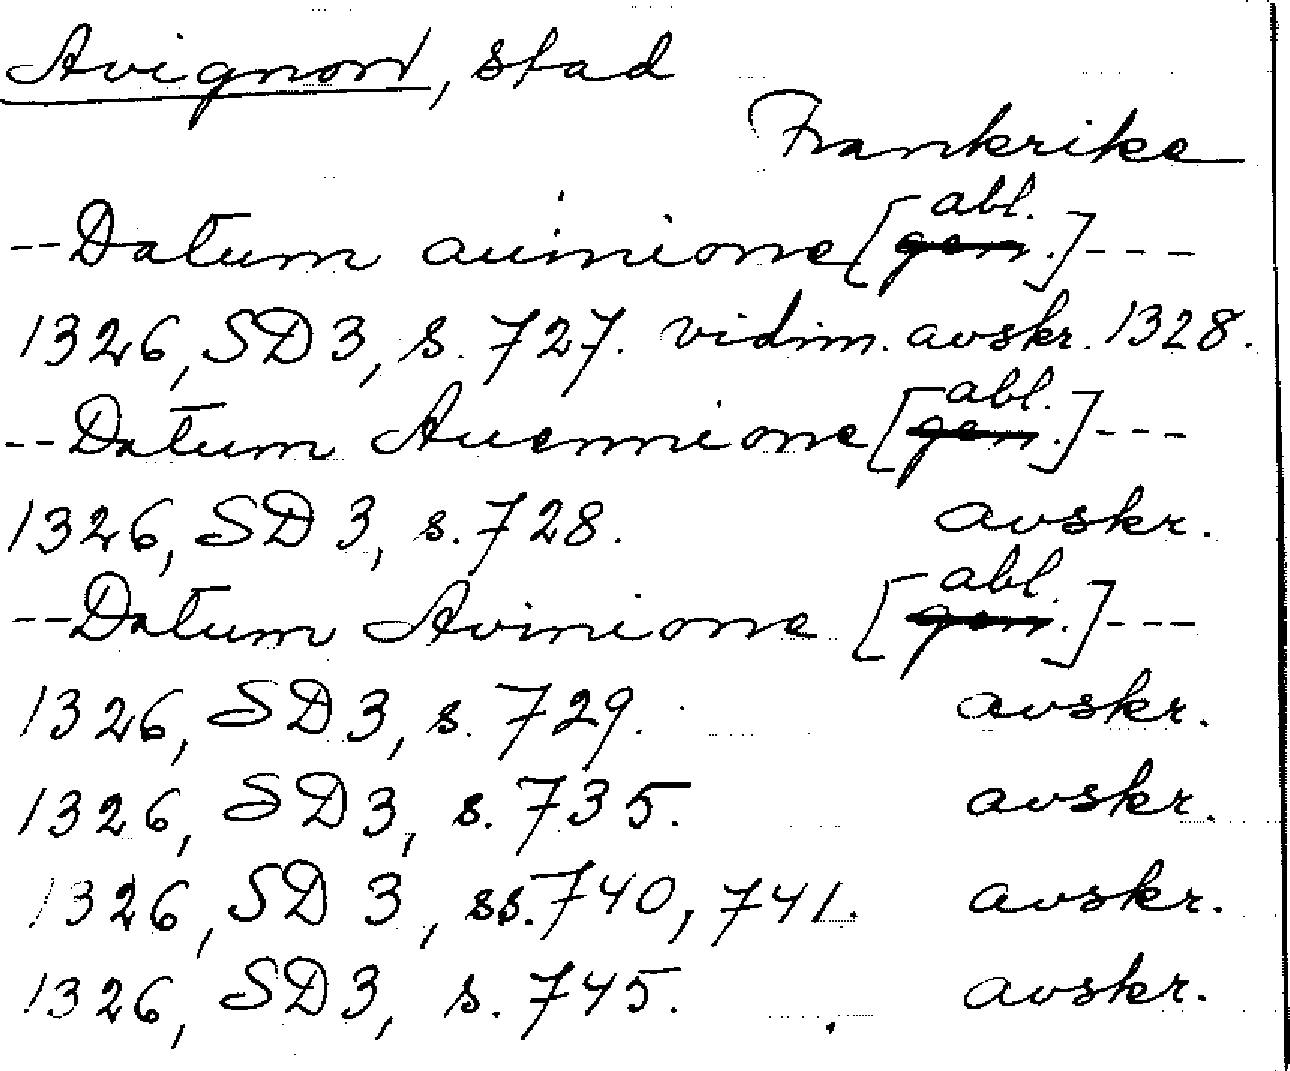 Avignon, stad
Frankrike
--Datum auinione [abl. gen.]---
1326, SD 3, s. 727. vidim. avskr. 1328.
--Datum Auennione [abl. gen.]---
1326, SD 3, s. 728. avskr.
--Datum Avinione [abl. gen.]---
1326, SD 3, s. 729. avskr.
1326, SD 3, s. 735. avskr.
1326, SD 3, ss. 740, 741. avskr.
1326, SD 3, s. 745. avskr.